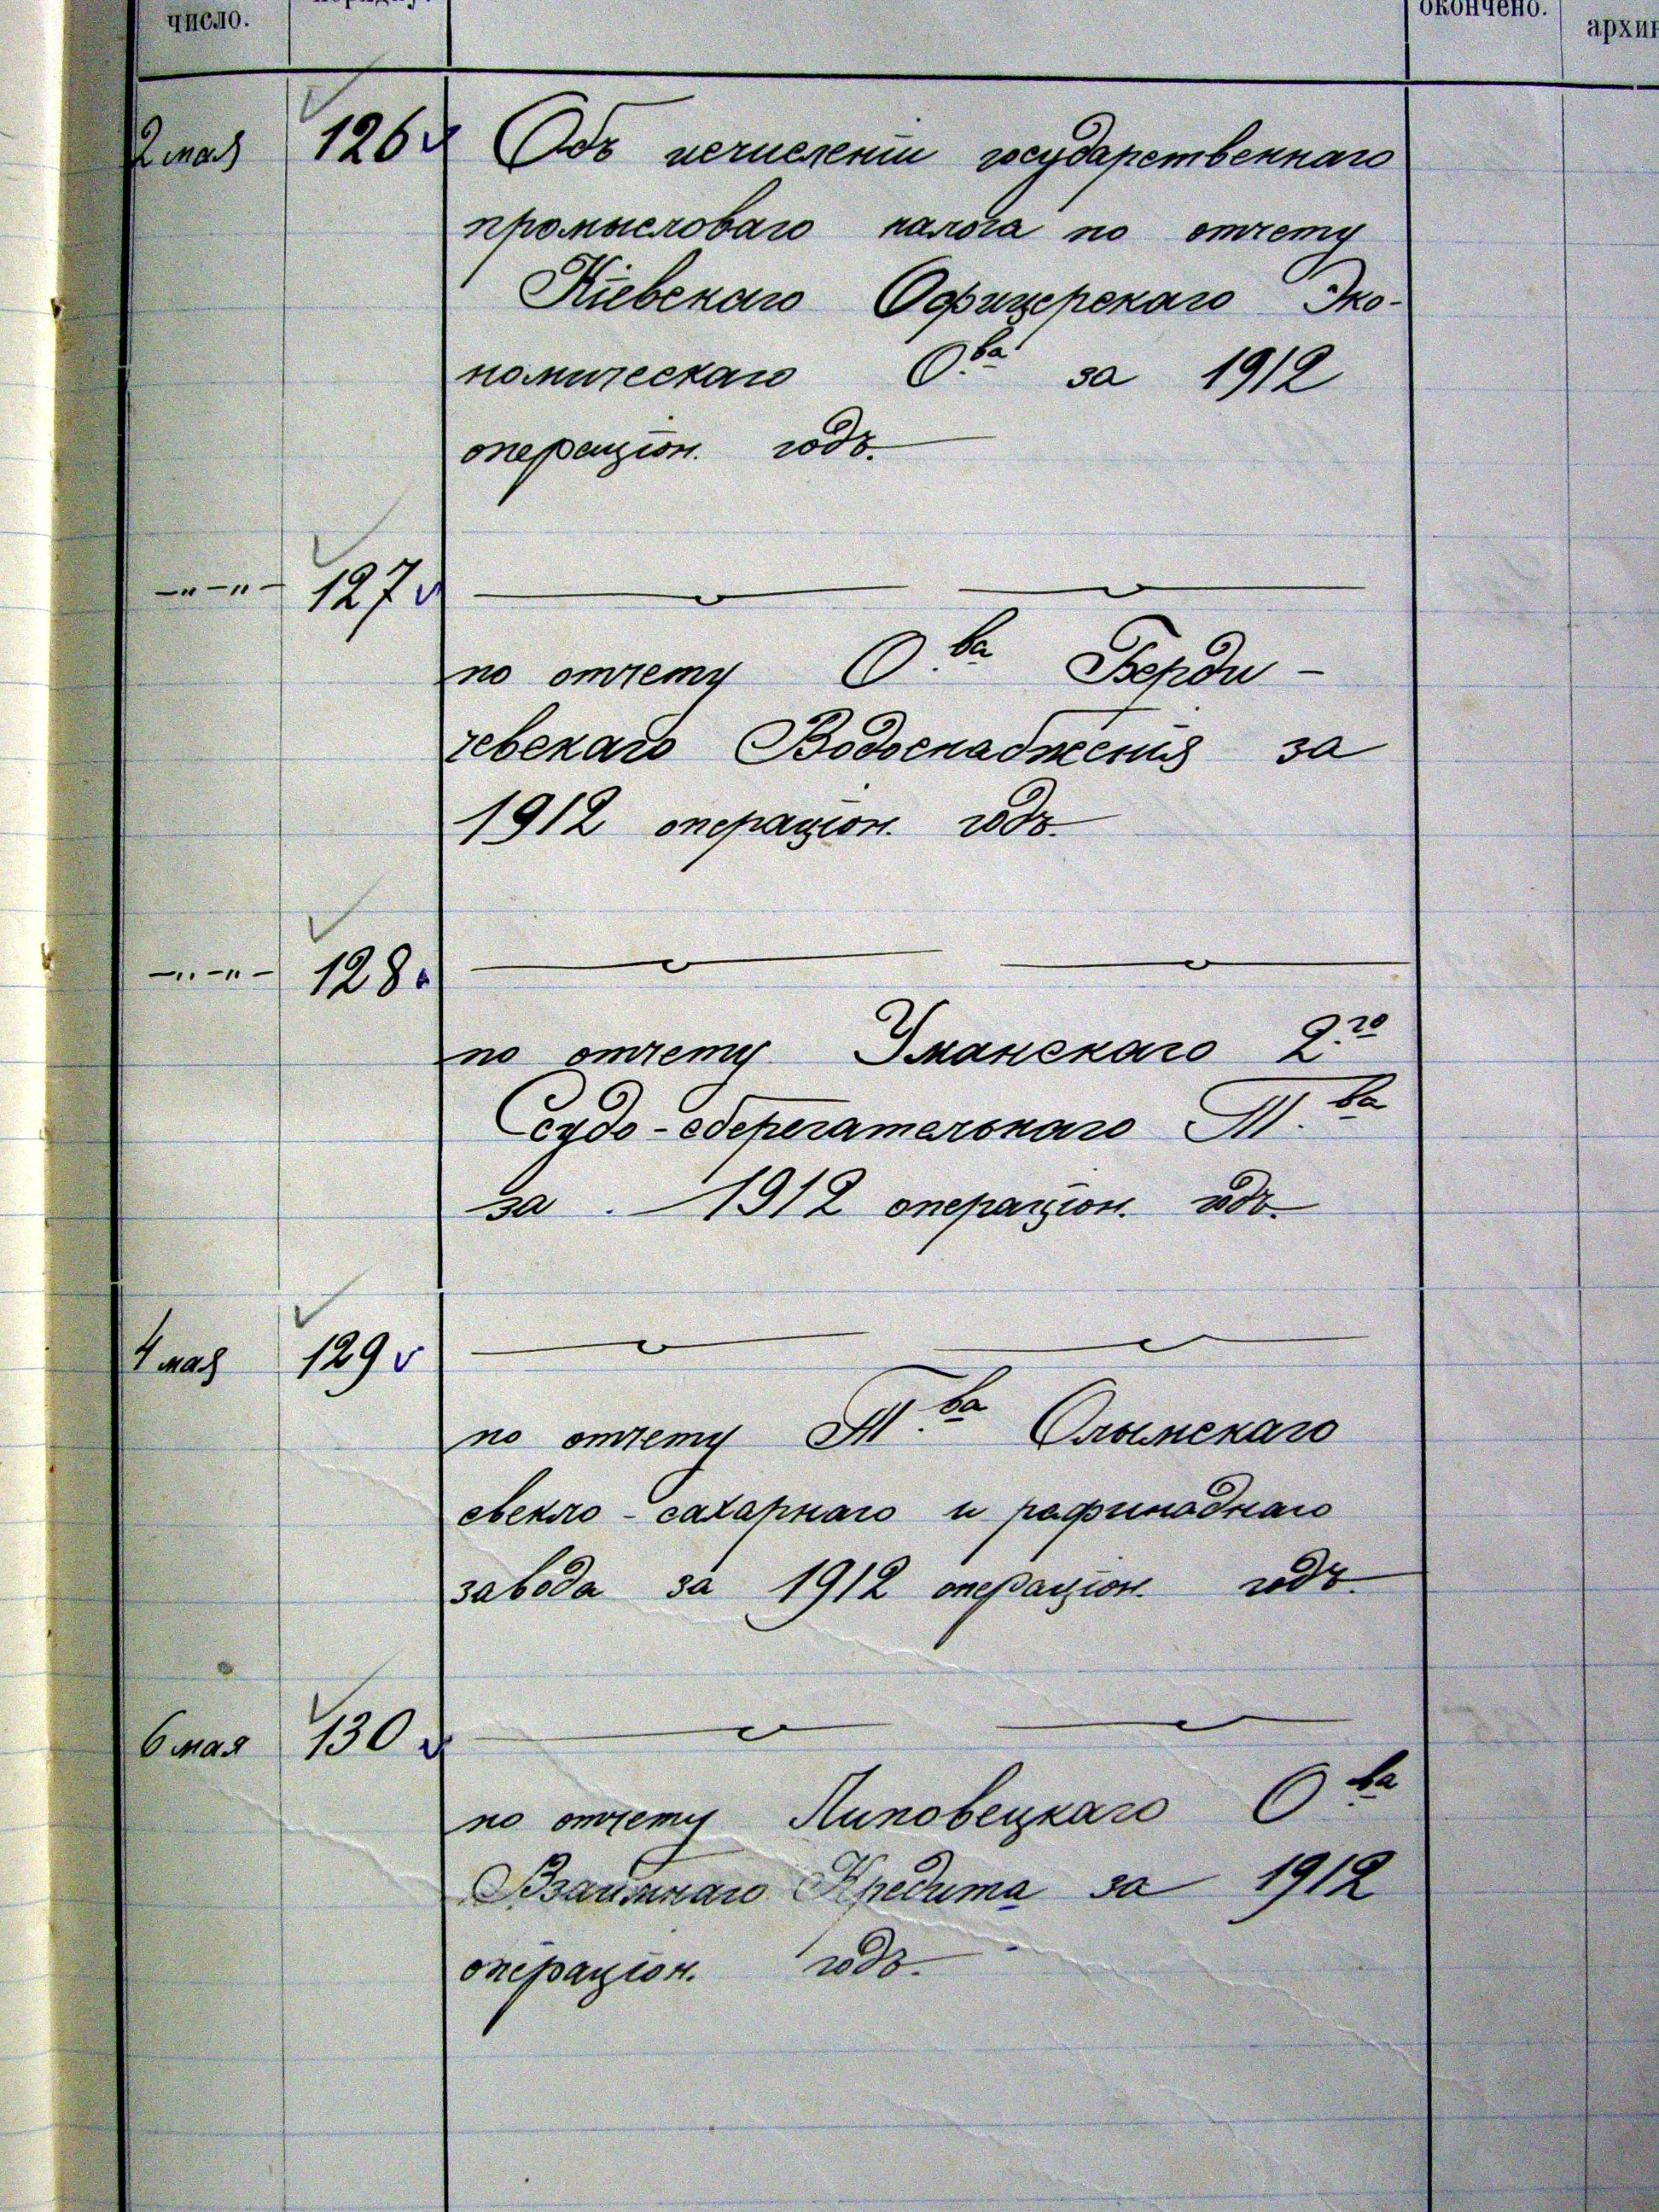 число.
порядку.
окончено.
2 мая 126 Объ исчисленіи государственнаго
промысловаго налога по отчету
Кіевскаго Офицерскаго Эко-
номическаго О.ва за 1912
операціон. годъ.
—"—"— 127
по отчету О.ва Берди-
чевскаго Водоснабженія за
1912 операціон. годъ.
—"—"— 128
по отчету Уманскаго 2.го
Ссудо-сберегательнаго Т.ва
за 1912 операціон. годъ.
4 мая 129
по отчету Т.ва Олымскаго
свекло-сахарнаго и рафинаднаго
завода за 1912 операціон. годъ.
6 мая 130
по отчету Липовецкаго О.ва
Взаимнаго Кредита за 1912
операціон. годъ.